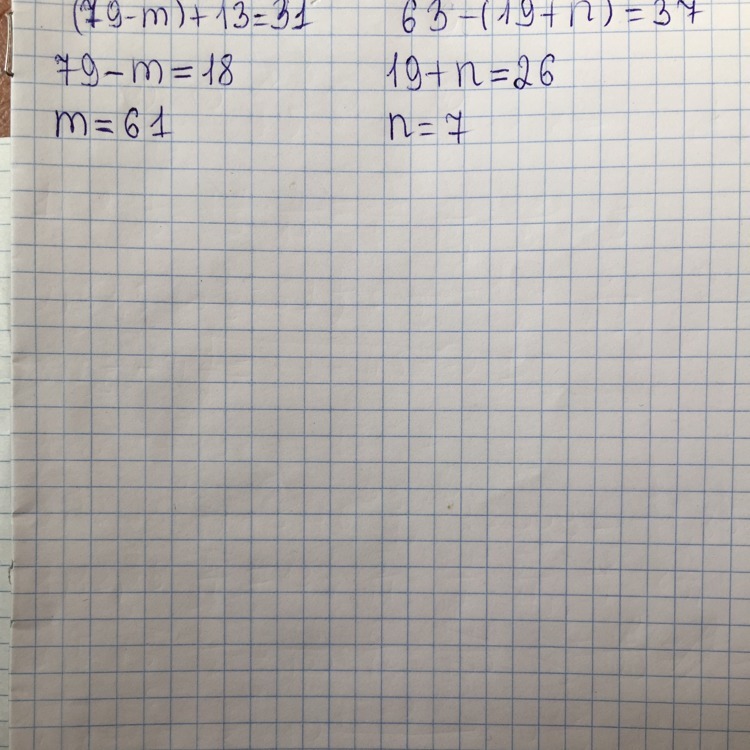 (79-m)+13=31
79-m=18
m=61
63-(19+n)=37
19+n=26
n=7